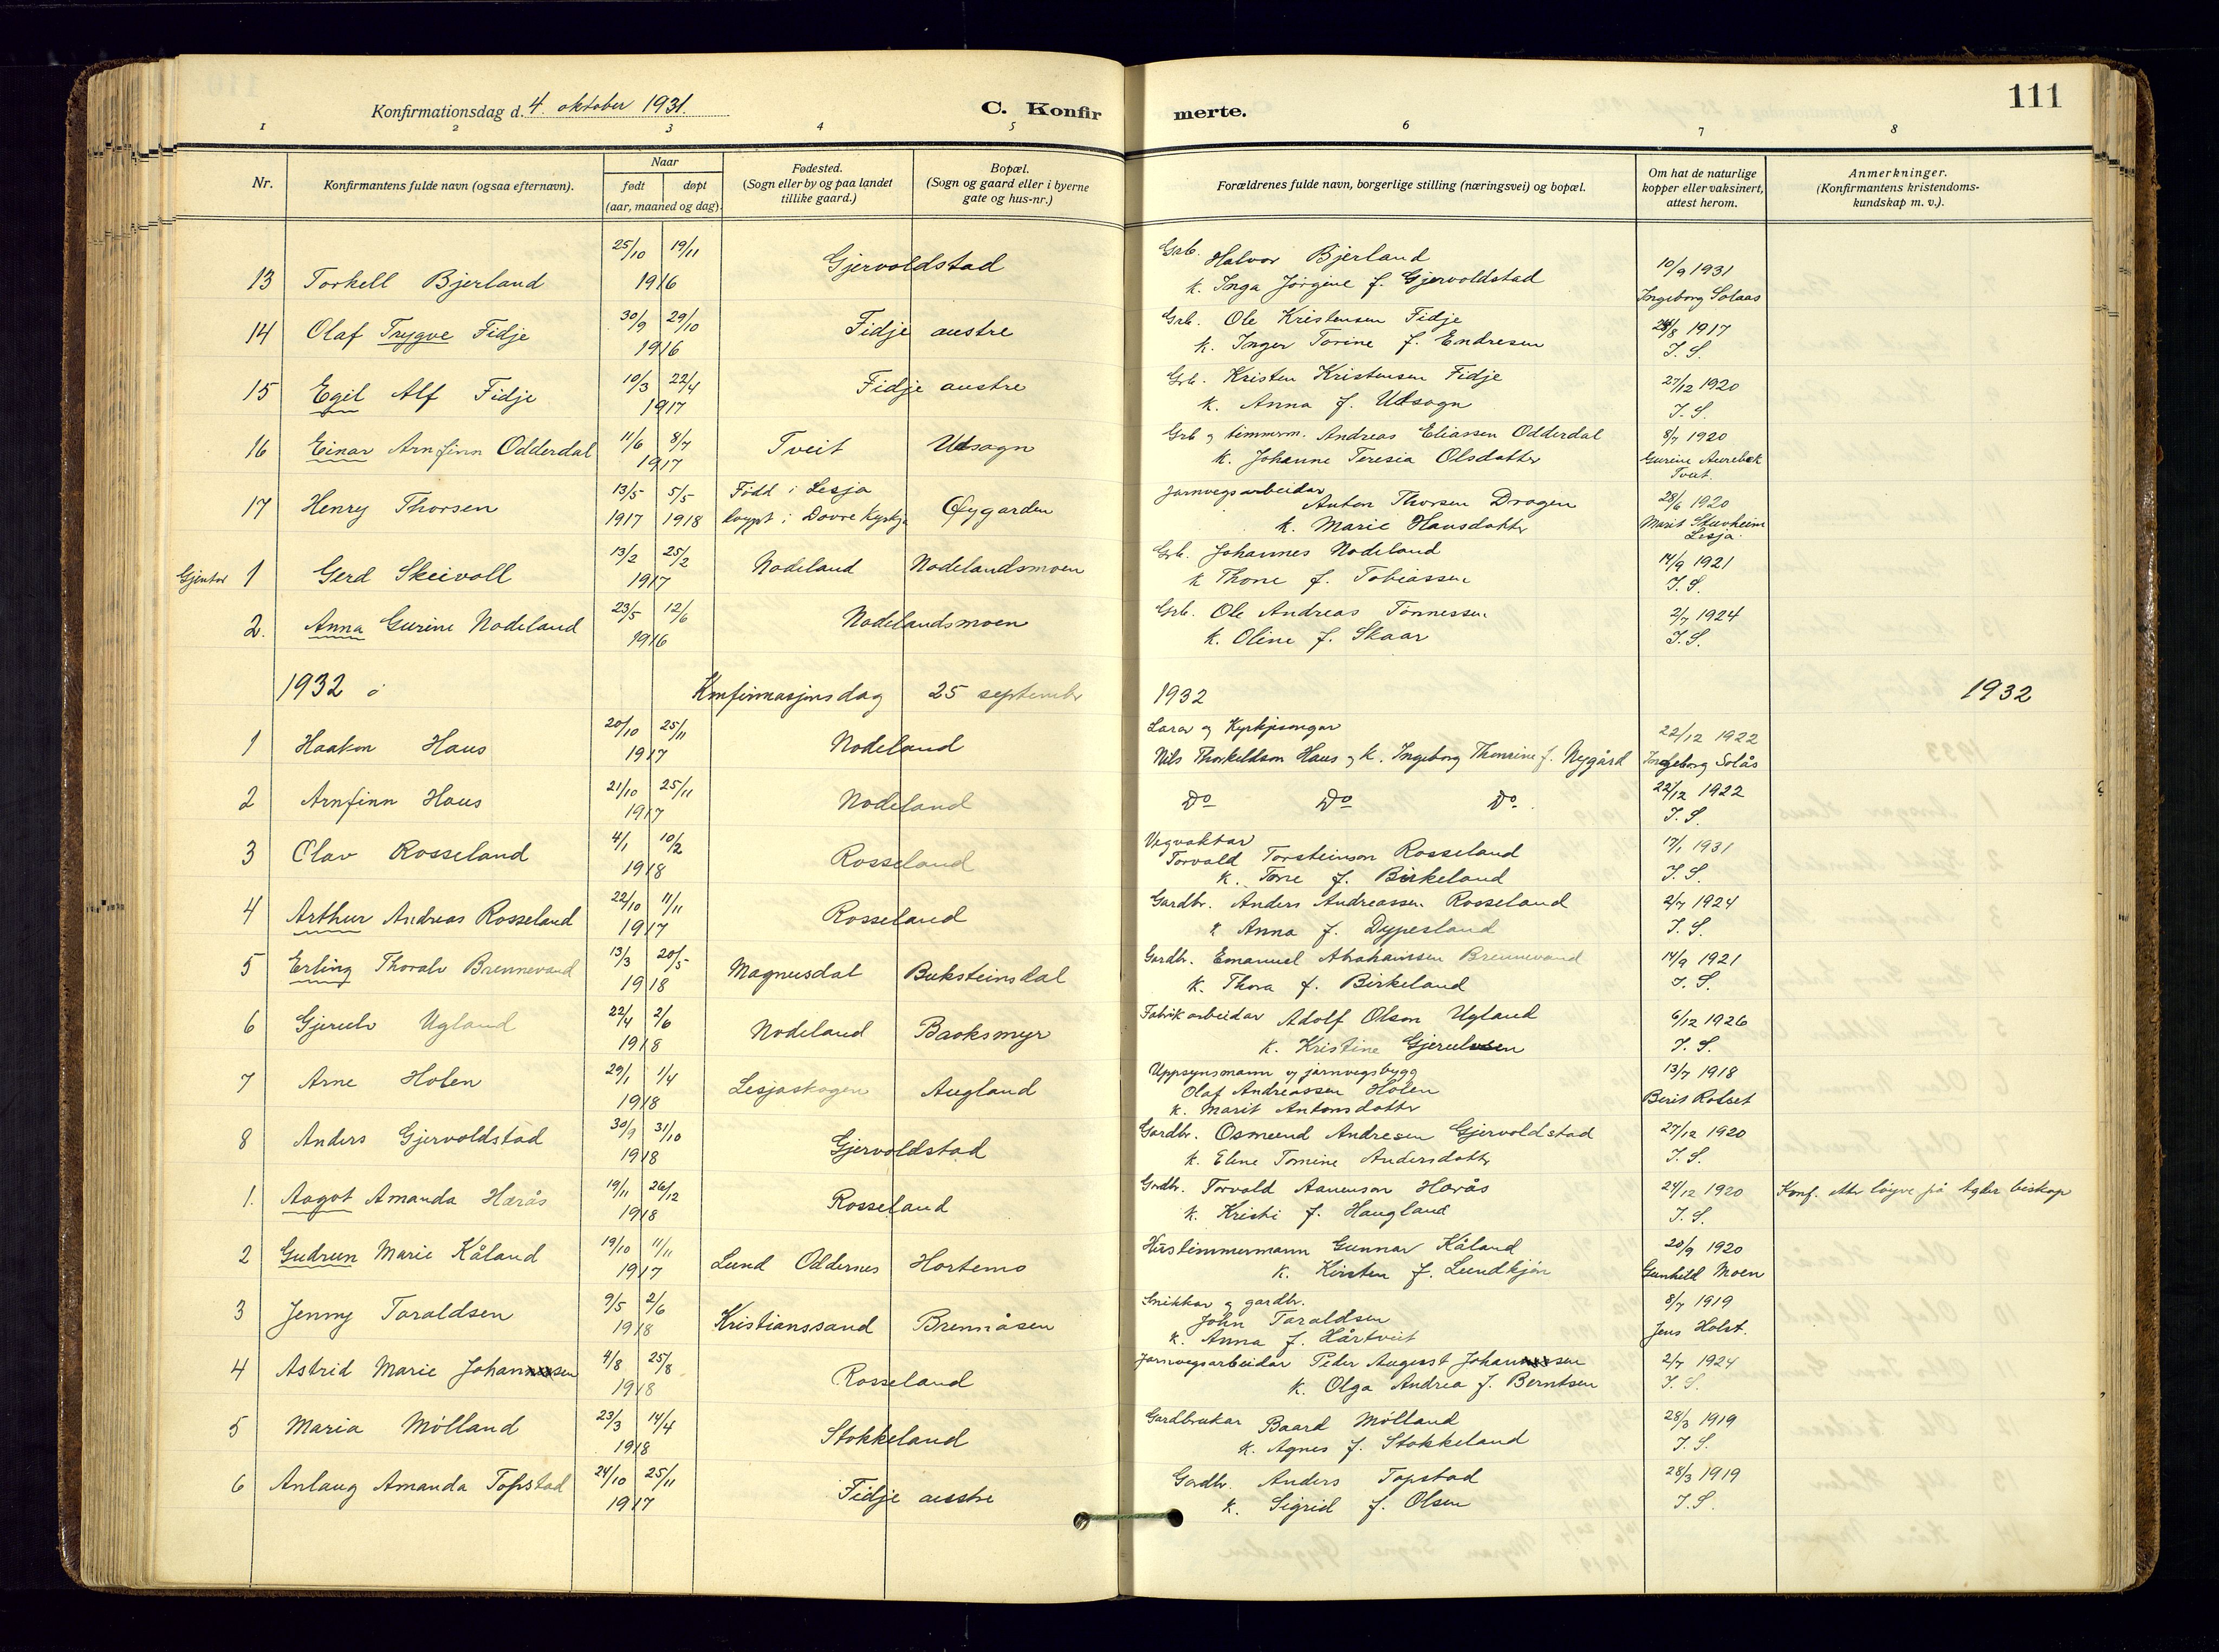 Konfirmationsdag d. 4. oktober 1931.
C. Konfirmerte.
111
1 2 3 4 5 6 7 8
Nr.
Konfirmantens fulde navn (ogsaa efternavn).
Naar
født døpt
(aar, maaned og dag).
Fødested.
(Sogn eller by og paa landet
tillike gaard.)
Bopæl.
(Sogn og gaard eller i byerne
gate og hus-nr.)
Forældrenes fulde navn, borgerlige stilling (næringsvei) og bopæl.
Om hat de naturlige
kopper eller vaksinert,
attest herom.
Anmerkninger.
(Konfirmantens kristendoms-
kundskap m. v.).
13 Torkell Bjerland 25/10 19/11 1916 Gjervoldstad Grb. Halvor Bjerland 10/9 1931
k. Inga Jörgine f. Gjervoldstad Ingeborg Solaas
14 Olaf Trygve Fidje 30/9 29/10 1916 Fidje austre Grb. Ole Kristensen Fidje 1917
k. Inger Torine f. Endresen I. S.
15 Egil Alf Fidje 10/3 22/4 1917 Fidje austre Grb. Kristen Kristensen Fidje 27/12 1920
k. Anna f. Udsogn I. S.
16 Einar Arnfinn Odderdal 11/6 8/7 1917 Tveit Udsogn Grb og timmrm. Andreas Eliassen Odderdal 8/7 1920
k. Johanne Teresia Olsdotter Gurine Aurebek
Tveit.
17 Henry Thorsen 13/5 1917 5/5 1918 Född i Lesja Öygarden Jarnvegsarbeidar Anton Thorsen Dragen 28/6 1920
döypt i Dovre Kyrkja k. Marie Hansdotter Marit Stuvheim
Lesja.
Gjentor 1 Gerd Skeivoll 13/2 25/2 1917 Nodeland Nodelandsmoen Grb. Johannes Nodeland 14/9 1921
k Thone f. Tobiassen I. S.
2. Anna Gurine Nodeland 23/5 12/6 1916 Nodelandsmoen Grb. Ole Andreas Tönnessen 2/7 1924
k. Oline f. Skaar I. S.
1932 Konfirmasjonsdag 25 september 1932 1932
1 Haakon Haus 20/10 25/11 1917 Nodeland Lærar og Kyrkjesongar 22/12 1922
Nils Thorkeldson Haus og k. Ingeborg Thonrine f. Nygård Ingeborg Solås
2 Arnfinn Haus 21/10 25/11 1917 Nodeland Do Do Do. 22/12 1922
I. S.
3 Olav Rosseland 4/1 10/2 1918 Rosseland Vegvaktar
Torvald Torsteinson Rosseland 17/1 1931
k. Tone f. Birkeland I. S.
4 Arthur Andreas Rosseland 22/10 11/11 1917 Rosseland Gardbr. Anders Andreassen Rosseland 2/7 1924
k Anna f. Dypesland I. S.
5 Erling Thoralv Brennevand 13/3 20/5 1918 Magnusdal Buksteinsdal Gardbr. Emanuel Abrahamsen Brennevand 14/9 1921
k. Thora f. Birkeland I. S.
6 Gjerulv Ugland 22/4 2/6 1918 Nodeland Baoksmyr Fabrikarbeidar Adolf Olson Ugland 6/12 1926
k. Kristine Gjerulvsen I. S.
7 Arne Holen 29/1 1/4 1918 Lesjaskogen Augland Uppsynsmann og jarnvegsbygg 13/7 1918
Olaf Andreassen Holen
k. Marit Antonsdotter Berit Rolset
8 Anders Gjervoldstad 30/9 31/10 1918 Gjervoldstad Gardbr. Osmund Andresen Gjervoldstad 27/12 1920
k. Eline Tomine Andersdotter I. S.
1. Aagot Amanda Herås 19/11 26/12 1918 Rosseland Gardbr. Torvald Aanenson Herås 24/12 1920 Konf. etter löyve på Agder biskop
k. Kristi f. Haugland I. S.
2 Gudrun Marie Kåland 19/10 11/11 1917 Lund Oddernes Hortemo Hustimmermann Gunnar Kåland 20/9 1920
k. Kirsten f. Lundkjön Gunhild Moen
3 Jenny Taraldsen 9/5 2/6 1918 Kristianssand Brennåsen Snikkar og gardbr. 8/7 1919
John Taraldsen
k. Anna f. Hårtveit Jens Holst.
4 Astrid Marie Johansen 4/8 25/8 1918 Rosseland Jarnvegsarbeidar Peder August Johansen 2/7 1924
k. Olga Andrea f. Berntsen I. S.
5 Maria Mölland 23/3 14/4 1918 Stokkeland Gardbrukar Baard Mölland 28/3 1919
k. Agnes f. Stokkeland I. S.
6 Anlaug Amanda Topstad 24/10 25/11 1917 Fidje austre Gardbr. Anders Topstad 28/3 1919
k. Sigrid f. Olsen I. S.